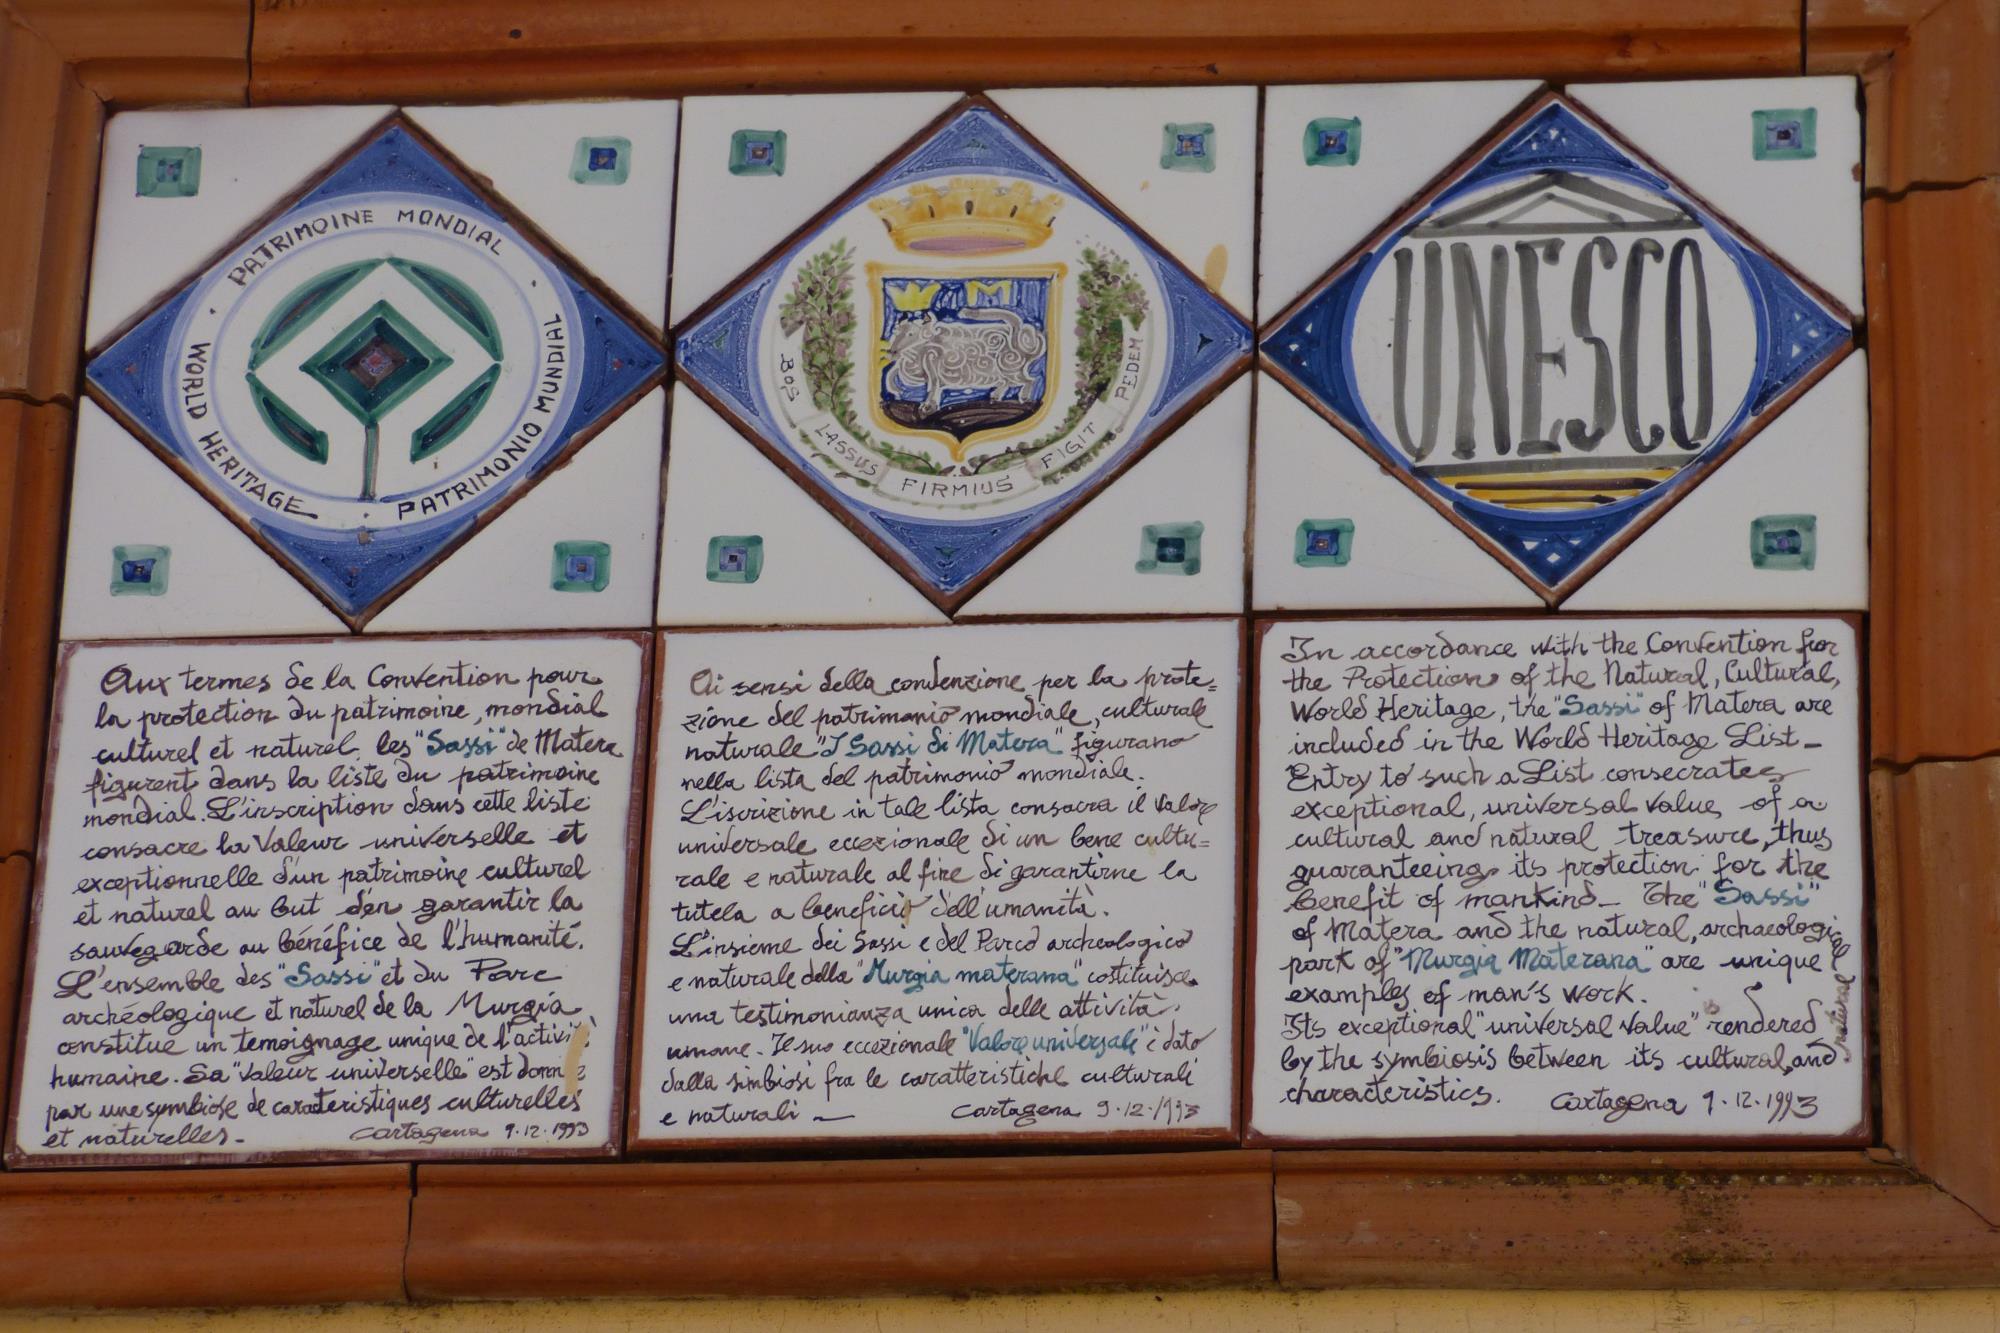 PATRIMOINE MONDIAL
WORLD HERITAGE
PATRIMONIO MUNDIAL
BOS
LASSUS
FIRMIUS
FIGIT
PEDEM
UNESCO
Aux termes de la Convention pour
la protection du patrimoine, mondial
culturel et naturel, les "Sassi" de Matera
figurent dans la liste du patrimoine
mondial. L'inscription dans cette liste
consacre la valeur universelle et
exceptionnelle d'un patrimoine culturel
et naturel au but d'en garantir la
sauvegarde au bénéfice de l'humanité.
L'ensemble des "Sassi" et du Parc
archéologique et naturel de la Murgia
constitue un temoignage unique de l'activi
humaine. Sa "valeur universelle" est donn
par une symbiose de caracteristiques culturelles
et naturelles-
Cartagena 9.12.1993
Ai sensi della convenzione per la prote=
zione del patrimonio mondiale, culturale
naturale "I Sassi di Matera" figurano
nella lista del patrimonio mondiale.
L'iscrizione in tale lista consacra il valore
universale eccezionale di un bene cultu=
rale e naturale al fine di garantirne la
tutela a beneficio dell'umanità.
L'insieme dei Sassi e del Parco archeologico
e naturale della "Murgia materana" costituisce
una testimonianza unica delle attività
umane. Il suo eccezionale "Valore universale" è dato
dalla simbiosi fra le caratteristiche culturali
e naturali -
Cartagena 9.12.1993
In accordance with the Convention for
the Protection of the Natural, Cultural,
World Heritage, the "Sassi" of Matera are
included in the World Heritage List-
Entry to such a List consecrates
exceptional, universal value of a
cultural and natural treasure, thus
guaranteeing its protection for the
benefit of mankind- The "Sassi"
of Matera and the natural, archaeological
park of "Murgia Materana" are unique
examples of man's work.
Its exceptional "universal value" rendered
by the symbiosis between its cultural, and natural
characteristics.
Cartagena 9.12.1993